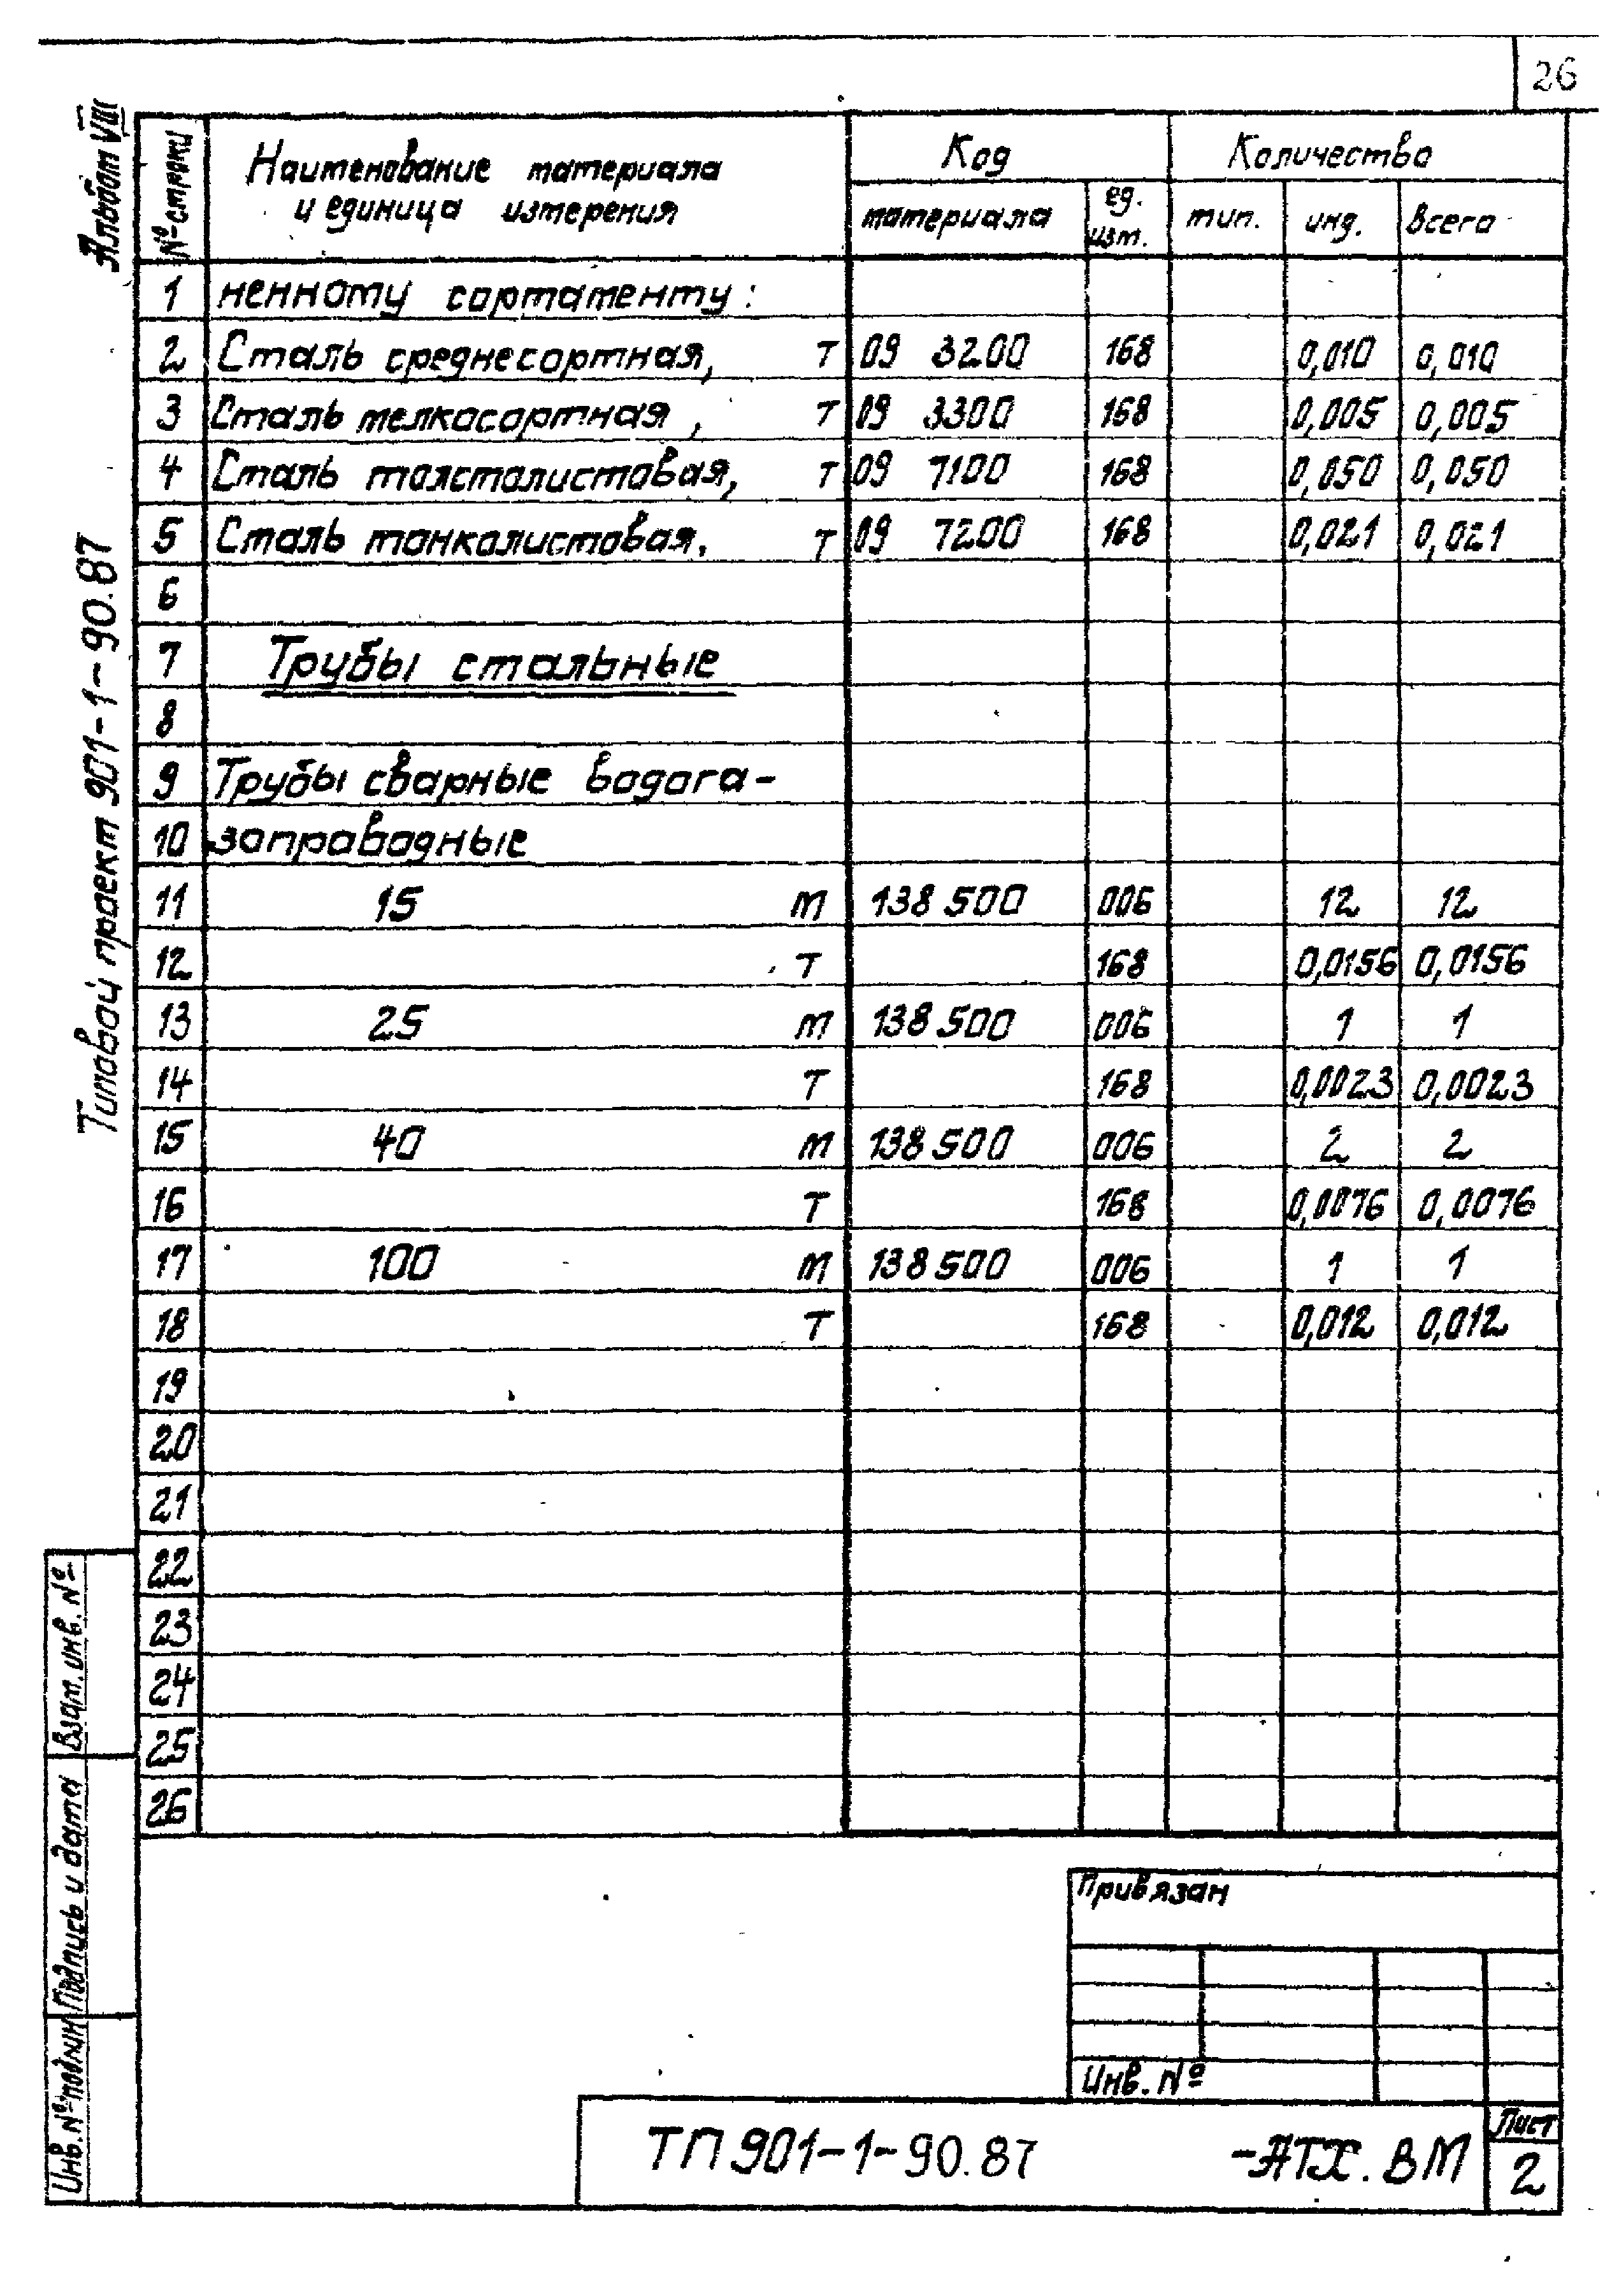 26
Альбом VIII
Типовой проект 901-1-90.87
№ строки
Наименование материала
и единица измерения
Код
Количество
материала
ед.
изм.
тип.
инд.
Всего
1 ненному сортаменту:
2 Сталь среднесортная, т 09 3200 168 0,010 0,010
3 Сталь мелкосортная, т 09 3300 168 0,005 0,005
4 Сталь толстолистовая, т 09 7100 168 0,050 0,050
5 Сталь тонколистовая, т 09 7200 168 0,021 0,021
6
7 Трубы стальные
8
9 Трубы сварные водога-
10 зопроводные
11 15 м 138500 006 12 12
12 т 168 0,0156 0,0156
13 25 м 138500 006 1 1
14 т 168 0,0023 0,0023
15 40 м 138500 006 2 2
16 т 168 0,0076 0,0076
17 100 м 138500 006 1 1
18 т 168 0,012 0,012
19
20
21
22
23
24
25
26
Взам. инв. №
Подпись и дата
Инв. № подлин
Привязан
Инв. №
ТП 901-1-90.87 -АТХ. ВМ
Лист
2